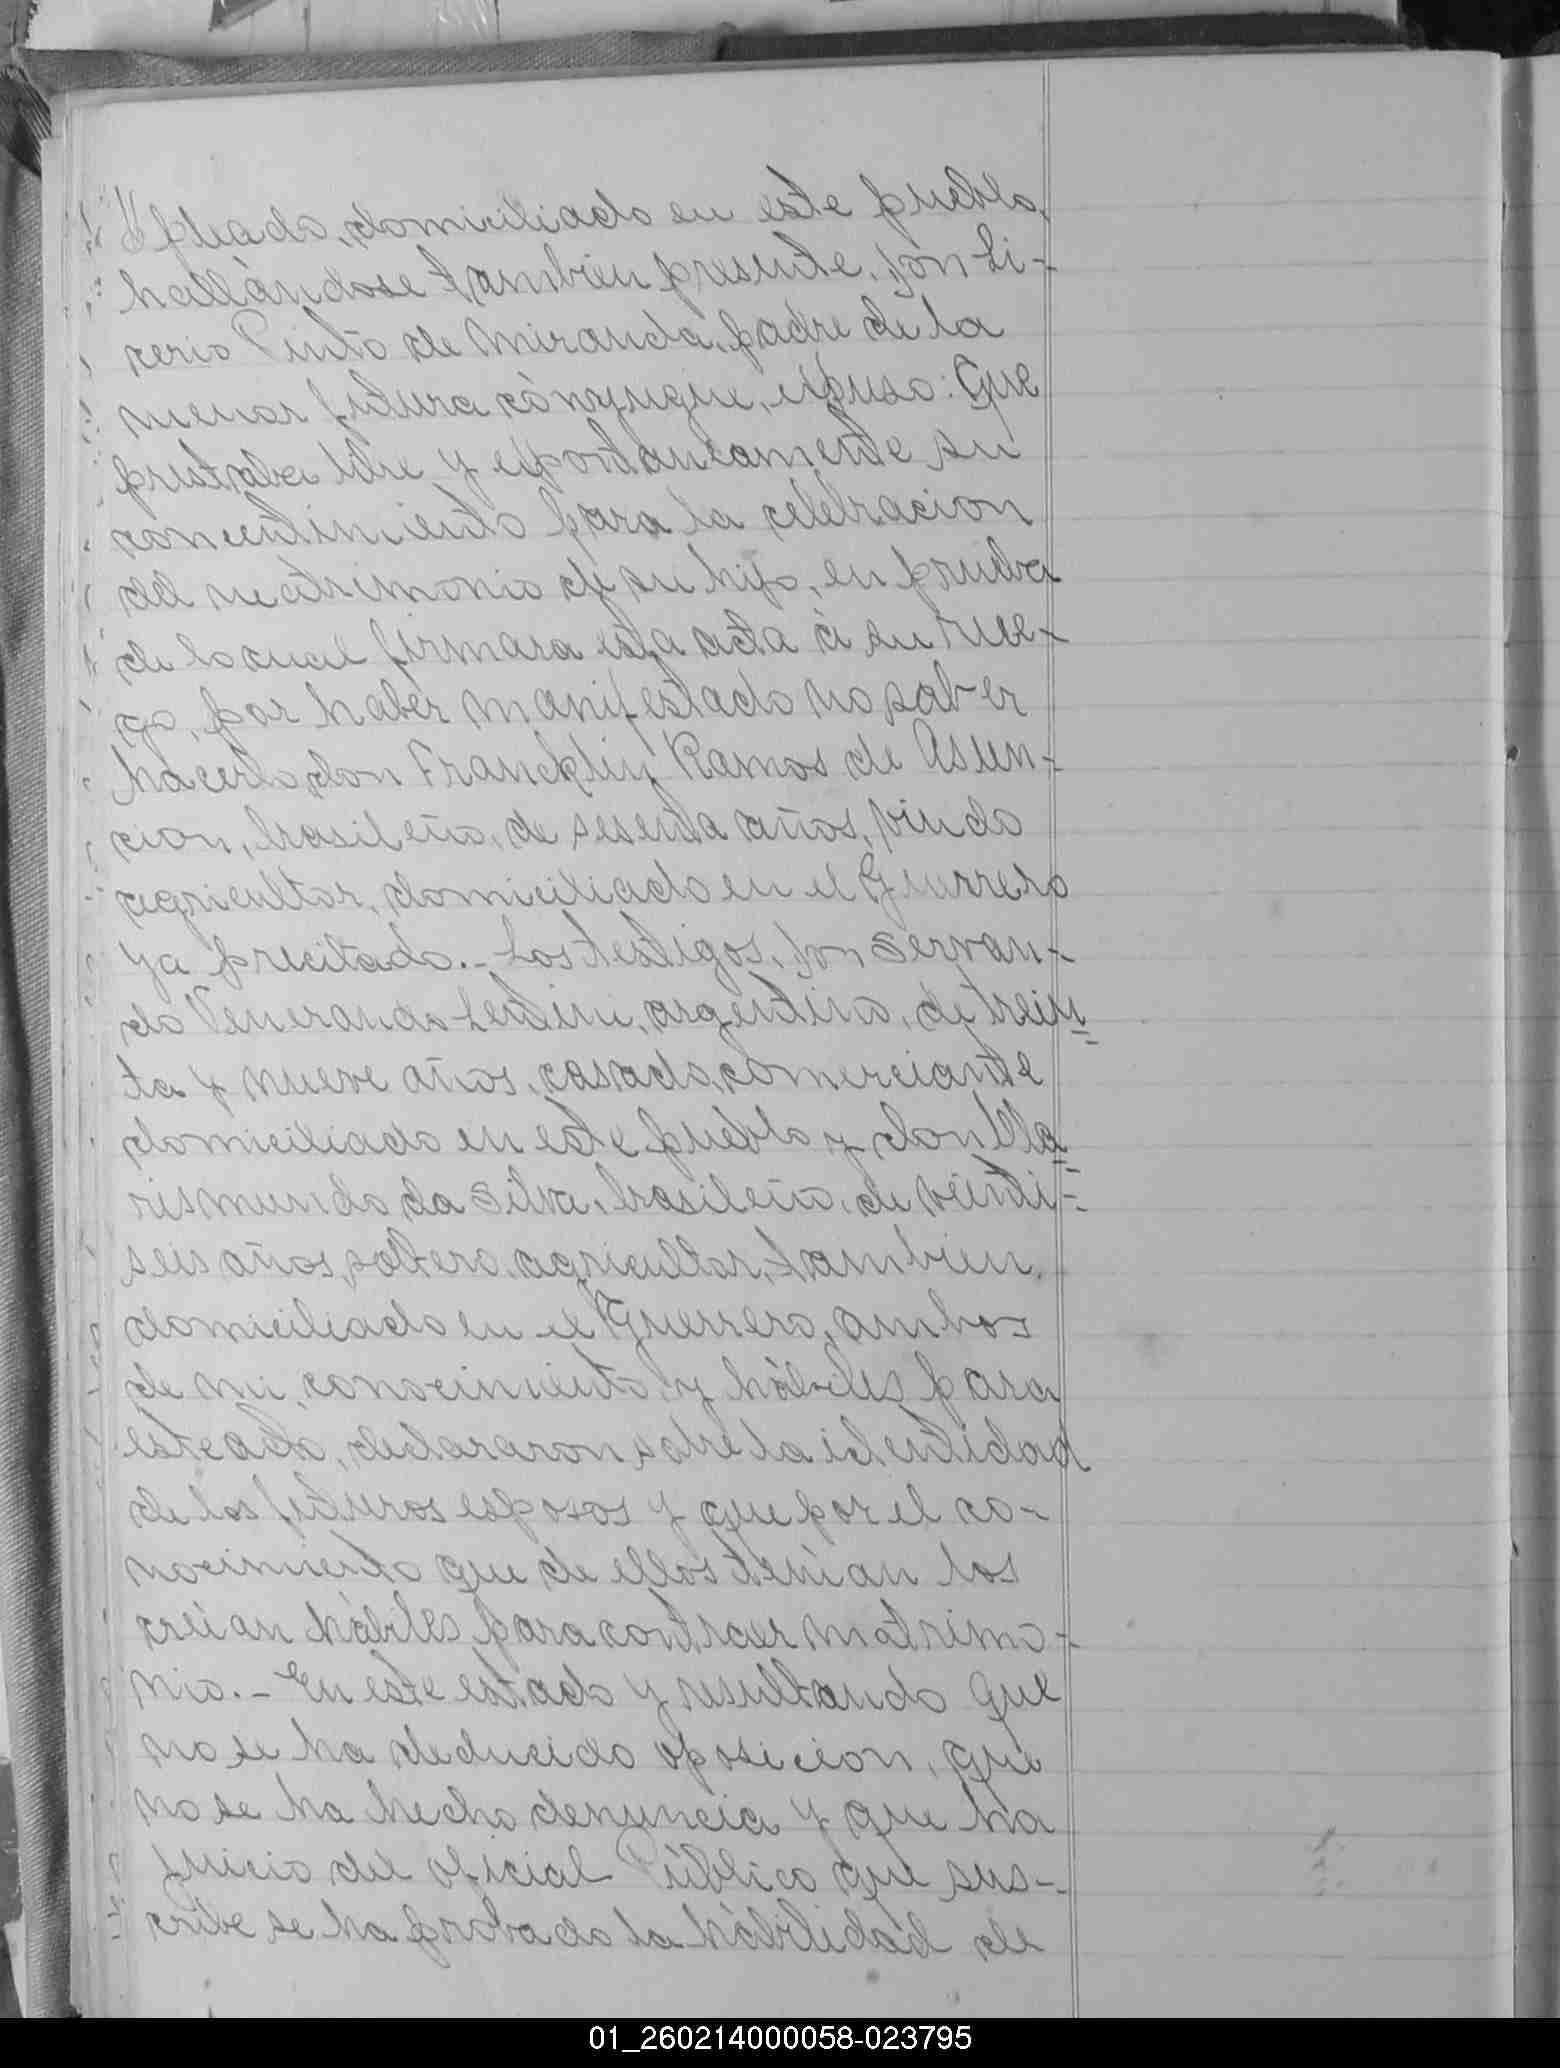 pleado, domiciliado en este pueblo,
hallándose tambien presente, don Li-
cerio Pinto de Miranda, padre de la
menor futura cónyugue, expuso: Que
prestaba libre y expontaneamente su
concentimiento para la celebracion
del matrimonio de su hija, en prueba
de lo cual firmara esta acta à su rue-
go, por haber manifestado no saber
hacerlo, don Francklin Ramos de Asun-
cion, brasileño, de sesenta años, viudo
agricultor, domiciliado en el Guerrero
ya precitado.- Los testigos, don Servan-
do Venerando Lentini, argentino, de trein
ta y nueve años, casado, comerciante
domiciliado en este pueblo y don Cla
rismundo da Silva, brasileño, de veinti-
seis años, soltero, agricultor, tambien
domiciliado en el Guerrero, ambos
de mi conocimiento y hábiles para
este acto, declararon sobre la identidad
de los futuros esposos y que por el co-
nocimiento que de ellos tenian los
creían hábiles para contraer matrimo-
nio.- En este estado y resultando que
no se ha deducido oposicion, que
no se ha hecho denuncia y que ha
juicio del oficial Público que sus-
cribe se ha probado la hábilidad de
01_260214000058-023795